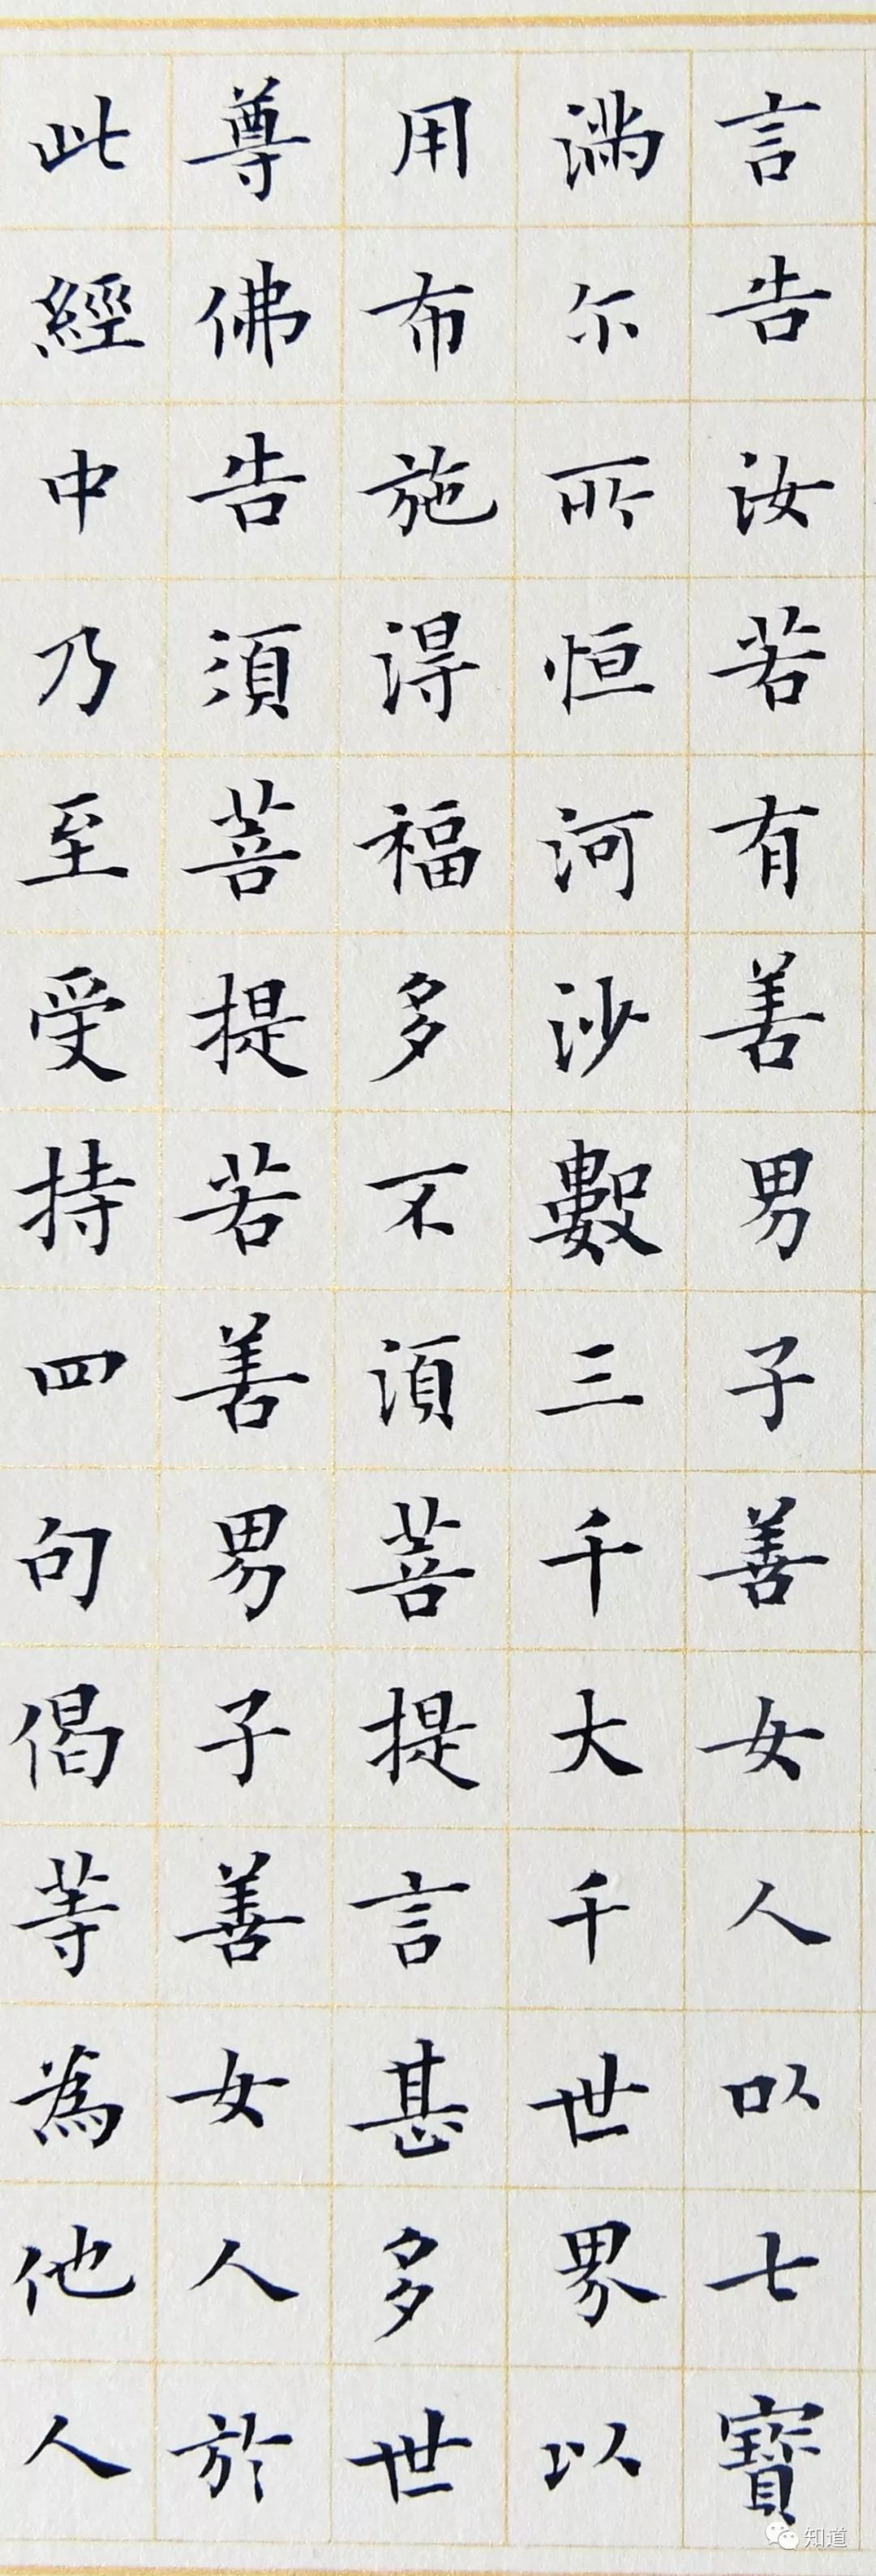 言告汝若有善男子善女人以七寶
滿尔所恒河沙數三千大千世界以
用布施得福多不須菩提言甚多世
尊佛告須菩提若善男子善女人於
此經中乃至受持四句偈等為他人
知道